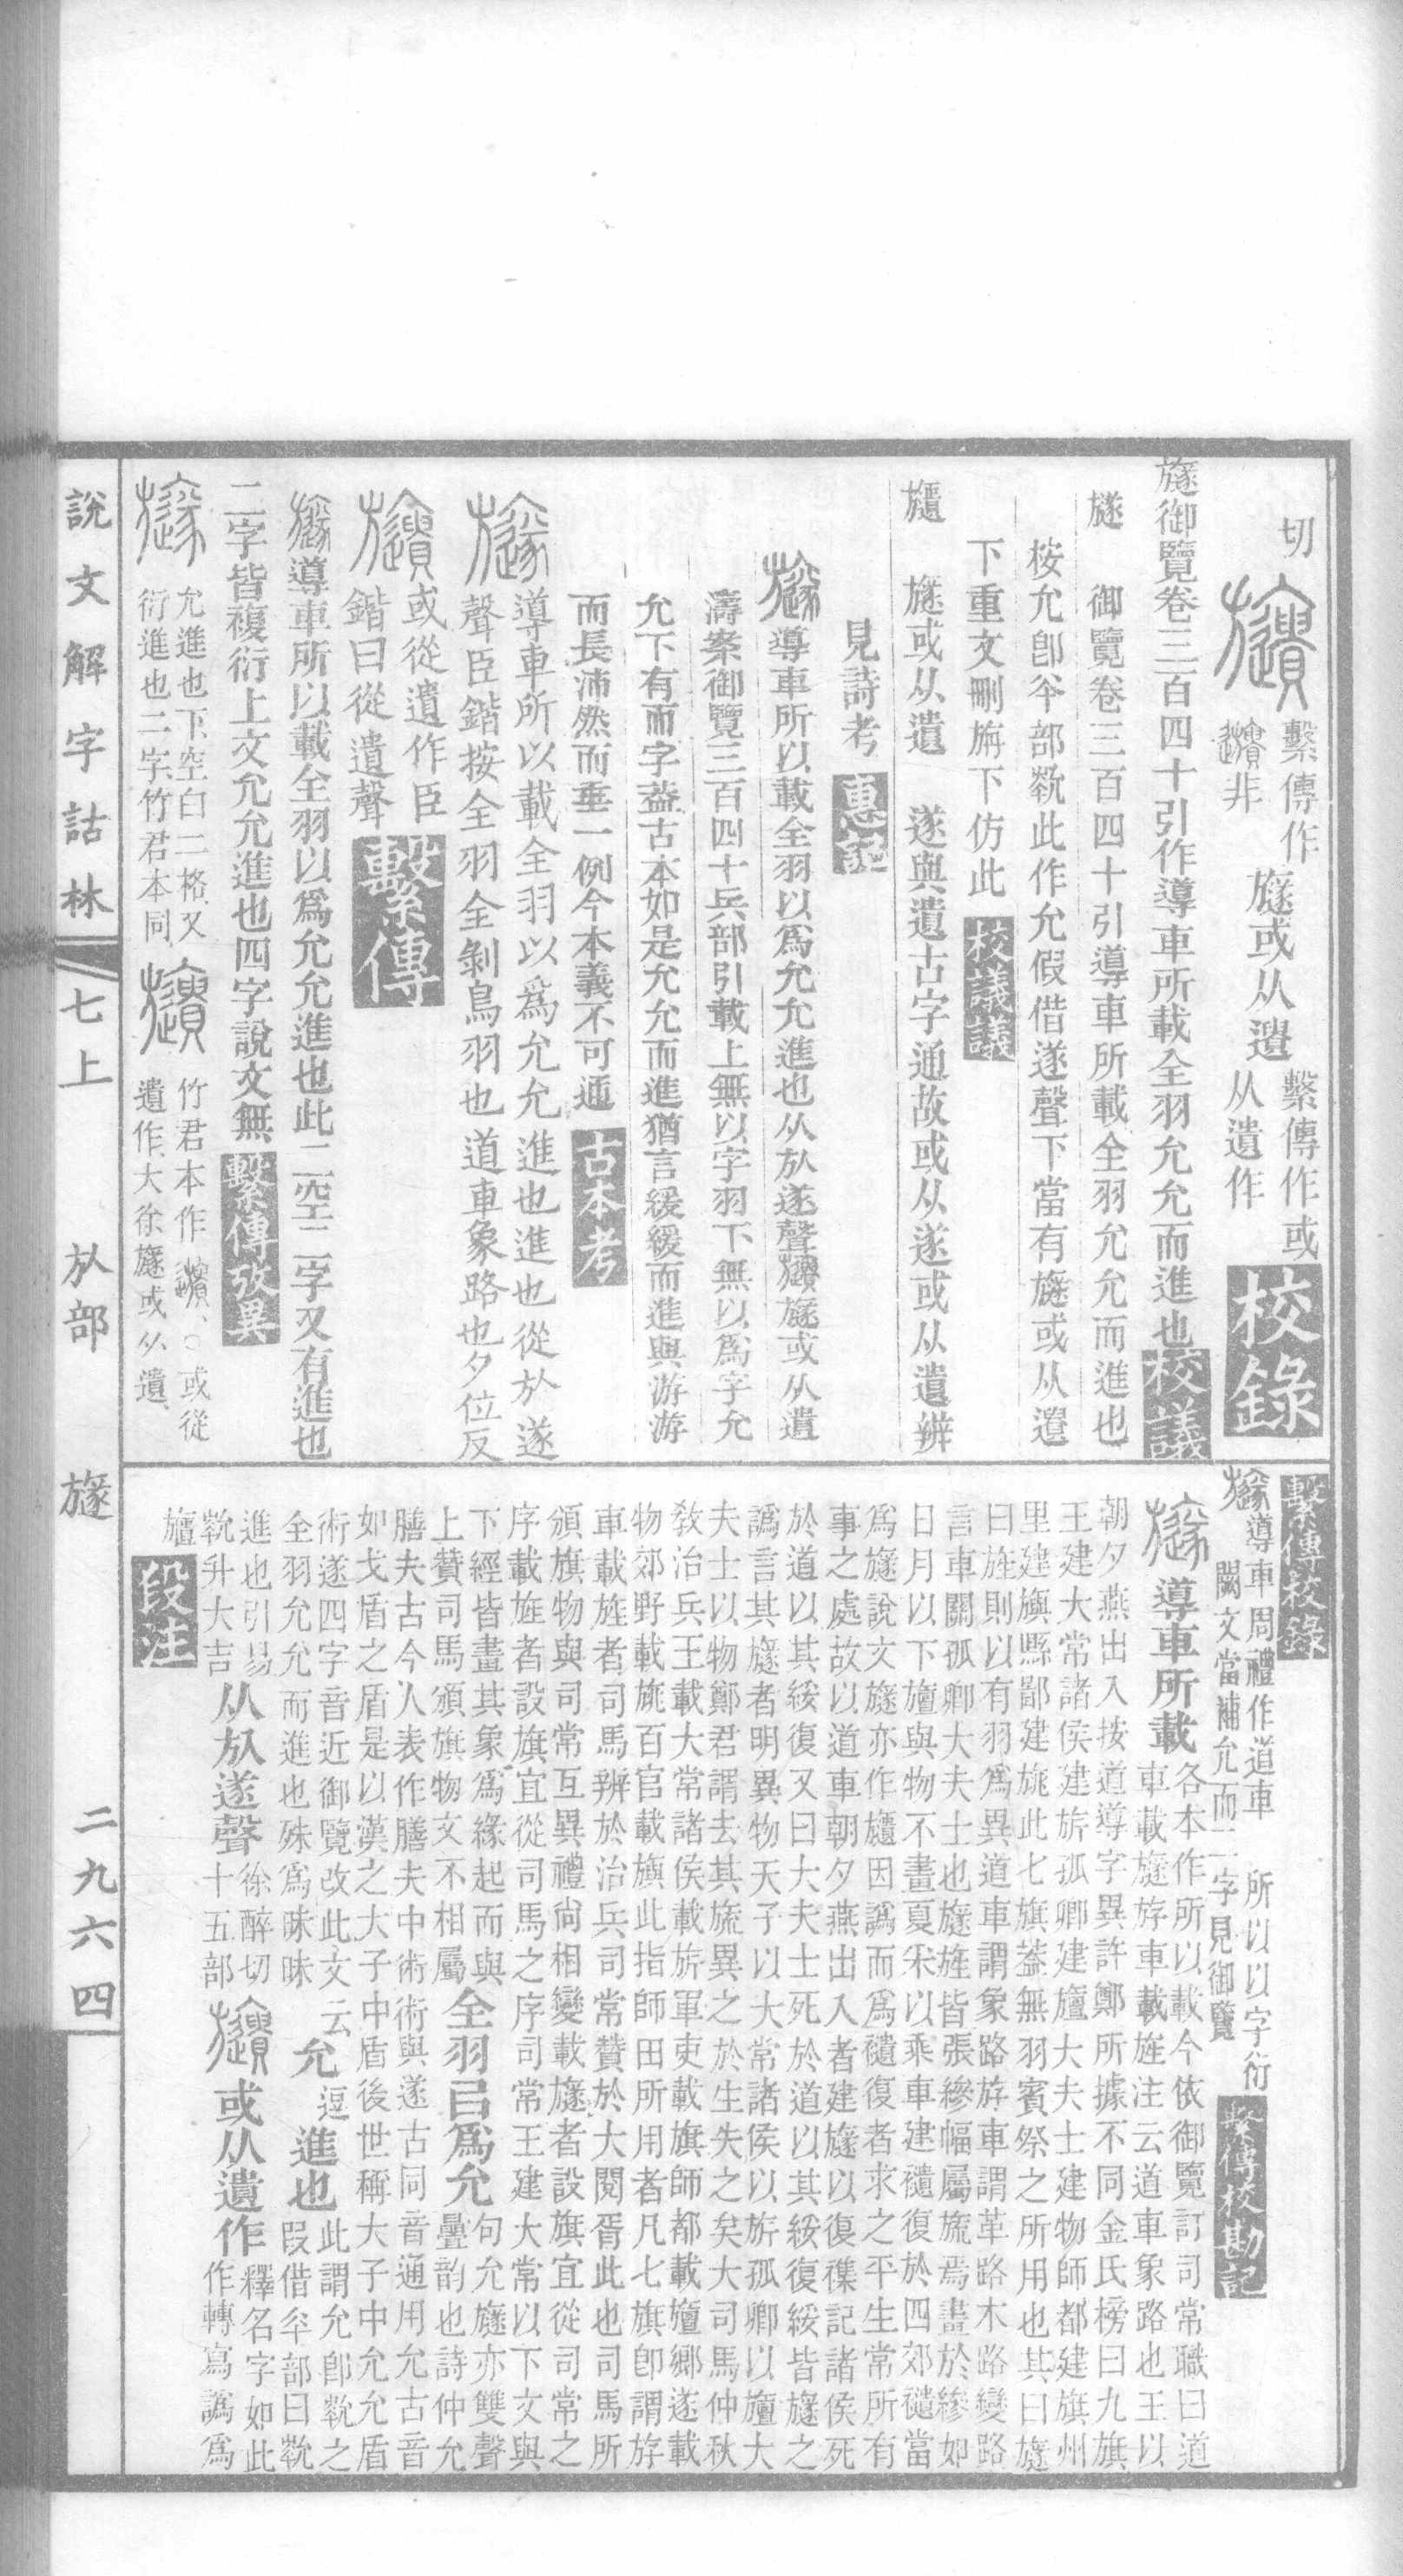 切
繫傳作
非
旞或从遺
繫傳作或
从遺作
校錄
旞御覽卷三百四十引作導車所載全羽允允而進也
校議
旞 御覽卷三百四十引導車所載全羽允允而進也
桉允卽夲部㽙此作允假借遂聲下當有旞或从遺
下重文刪旃下仿此
校議議
旞或从遺 遂與遺古字通故或从遂或从遺辨
見詩考
惠記
導車所以載全羽以爲允允進也从㫃遂聲旞或从遺
濤案御覽三百四十兵部引載上無以字羽下無以爲字允
允下有而字葢古本如是允允而進猶言緩緩而進與游游
而長沛然而垂一例今本義不可通
古本考
導車所以載全羽以爲允允進也進也從㫃遂
聲臣鍇按全羽全剝鳥羽也道車象路也夕位反
或從遺作臣
鍇曰從遺聲
繫傳
導車所以載全羽以爲允允進也此二空二字又有進也
二字皆複衍上文允允進也四字說文無
繫傳攷異
允進也下空白二格又
衍進也二字竹君本同
竹君本作 ○或從
遺作大徐旞或从遺
繫傳校錄
導車周禮作道車 所以以字衍
闕文當補允而二字見御覽
繫傳校勘記
導車所載
各本作所以載今依御覽訂司常職曰道
車載旞斿車載旌注云道車象路也王以
朝夕燕出入按道導字異許鄭所據不同金氏榜曰九旗
王建大常諸侯建旂孤卿建旜大夫士建物師都建旗州
里建旟縣鄙建旐此七旗葢無羽賓祭之所用也其曰旞
曰旌則以有羽爲異道車謂象路斿車謂革路木路變路
言車關孤卿大夫士也旞旌皆張縿幅屬旒焉畫於縿如
日月以下旜與物不畫夏采以乘車建綏復於四郊禭當
爲旞說文旞亦作𣄧因譌而爲禭復者求之平生常所有
事之處故以道車朝夕燕出入者建旞以復襍記諸侯死
於道以其綏復又曰大夫士死於道以其綏復綏皆旞之
譌言其旞者明異物天子以大常諸侯以旂孤卿以旜大
夫士以物鄭君謂去其旒異之於生失之矣大司馬仲秋
教治兵王載大常諸侯載旂軍吏載旗師都載旜鄉遂載
物郊野載旐百官載旟此指師田所用者凡七旗卽謂斿
車載旌者司馬辨於治兵司常贊於大閱胥此也司馬所
頒旗物與司常互異禮尙相變載旞者設旗宜從司常之
序載旌者設旗宜從司馬之序司常王建大常以下文與
下經皆畫其象爲緣起而與
上贊司馬頒旗物文不相屬
全羽㠯爲允
句允旞亦雙聲
疊韵也詩仲允
膳夫古今人表作膳夫中術術與遂古同音通用允古音
如戈盾之盾是以漢之大子中盾後世稱大子中允允盾
術遂四字音近御覽改此文云
全羽允允而進也殊爲昧昧
允
逗
進也
此謂允卽㽙之
叚借夲部曰㽙
進也引易
㽙升大吉
从㫃遂聲
徐醉切
十五部
或从遺作
釋名字如此
作轉寫譌爲
𣄧
段注
說文解字詁林
七上
㫃部
旞
二九六四